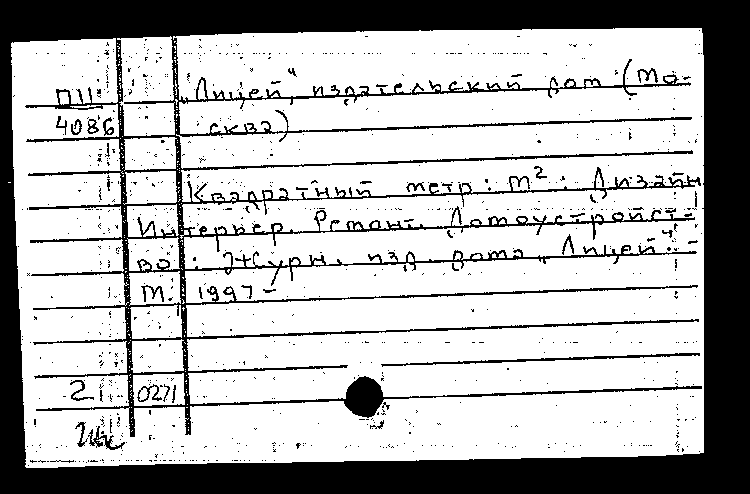 П11 „Лицей", издательский дом (Мо-
4086 сква)
Квадратный метр: м²: Дизайн
Интерьер. Ремонт. Домоустройст-
во: Журн. изд. дома „Лицей". -
М. 1997 -
2 0271